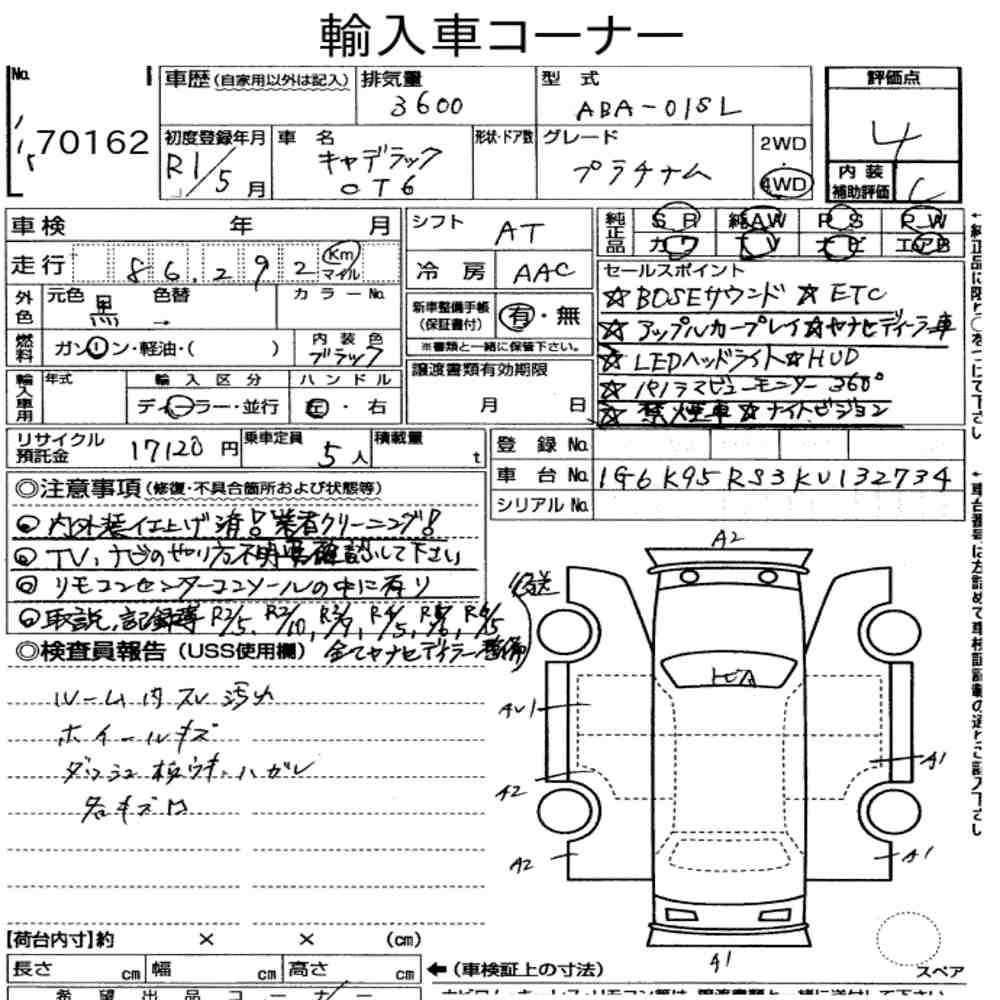 輸入車コーナー
No. 70162
車歴 (自家用以外は記入) 排気量 3600 型式 ABA-O1SL 評価点 4
初度登録年月 R1/5月 車名 キャデラック CT6 形状・ドア数 グレード プラチナム 2WD・4WD 内装補助評価 C
車検 年 月 シフト AT 純正品 SR 純AW PS PW
走行 86,292 Km マイル 冷房 AAC カワ TV ナビ エアB
外色 元色 黒 色替 → カラーNo. 新車整備手帳(保証書付) 有・無
※書類と一緒に保管下さい。
燃料 ガソリン・軽油・( ) 内装色 ブラック
輸入車用 年式 輸入区分 ディーラー・並行 ハンドル 左・右
譲渡書類有効期限 月 日
セールスポイント
☆BOSEサウンド ☆ETC
☆アップルカープレイ☆ヤナセディーラー車
☆LEDヘッドライト☆HUD
☆パノラマビューモニター360°
☆禁煙車☆ナイトビジョン
リサイクル預託金 17120円 乗車定員 5人 積載量 t
登録No.
車台No. 1G6K95RS3KU132734
シリアルNo.
◎注意事項(修復・不具合箇所および状態等)
◎内外装仕上げ済!業者クリーニング!
◎TV、ナビのやり方不明要確認して下さい
◎リモコンセンターコンソールの中に有り
◎取説、記録簿 R2/5、R2/10、R3/9、R4/5、R5/6、R6/5
後送
全てヤナセディーラー整備
◎検査員報告 (USS使用欄)
ルーム内スレ汚れ
ホイールキズ
ダッシュ板ウキ、ハガレ
各キズ凹
A2
トビA
AU1
A1
A2
A2
A1
A1
スペア
【荷台内寸】約 × × (cm)
長さ cm 幅 cm 高さ cm ←(車検証上の寸法)
希望出品コーナー